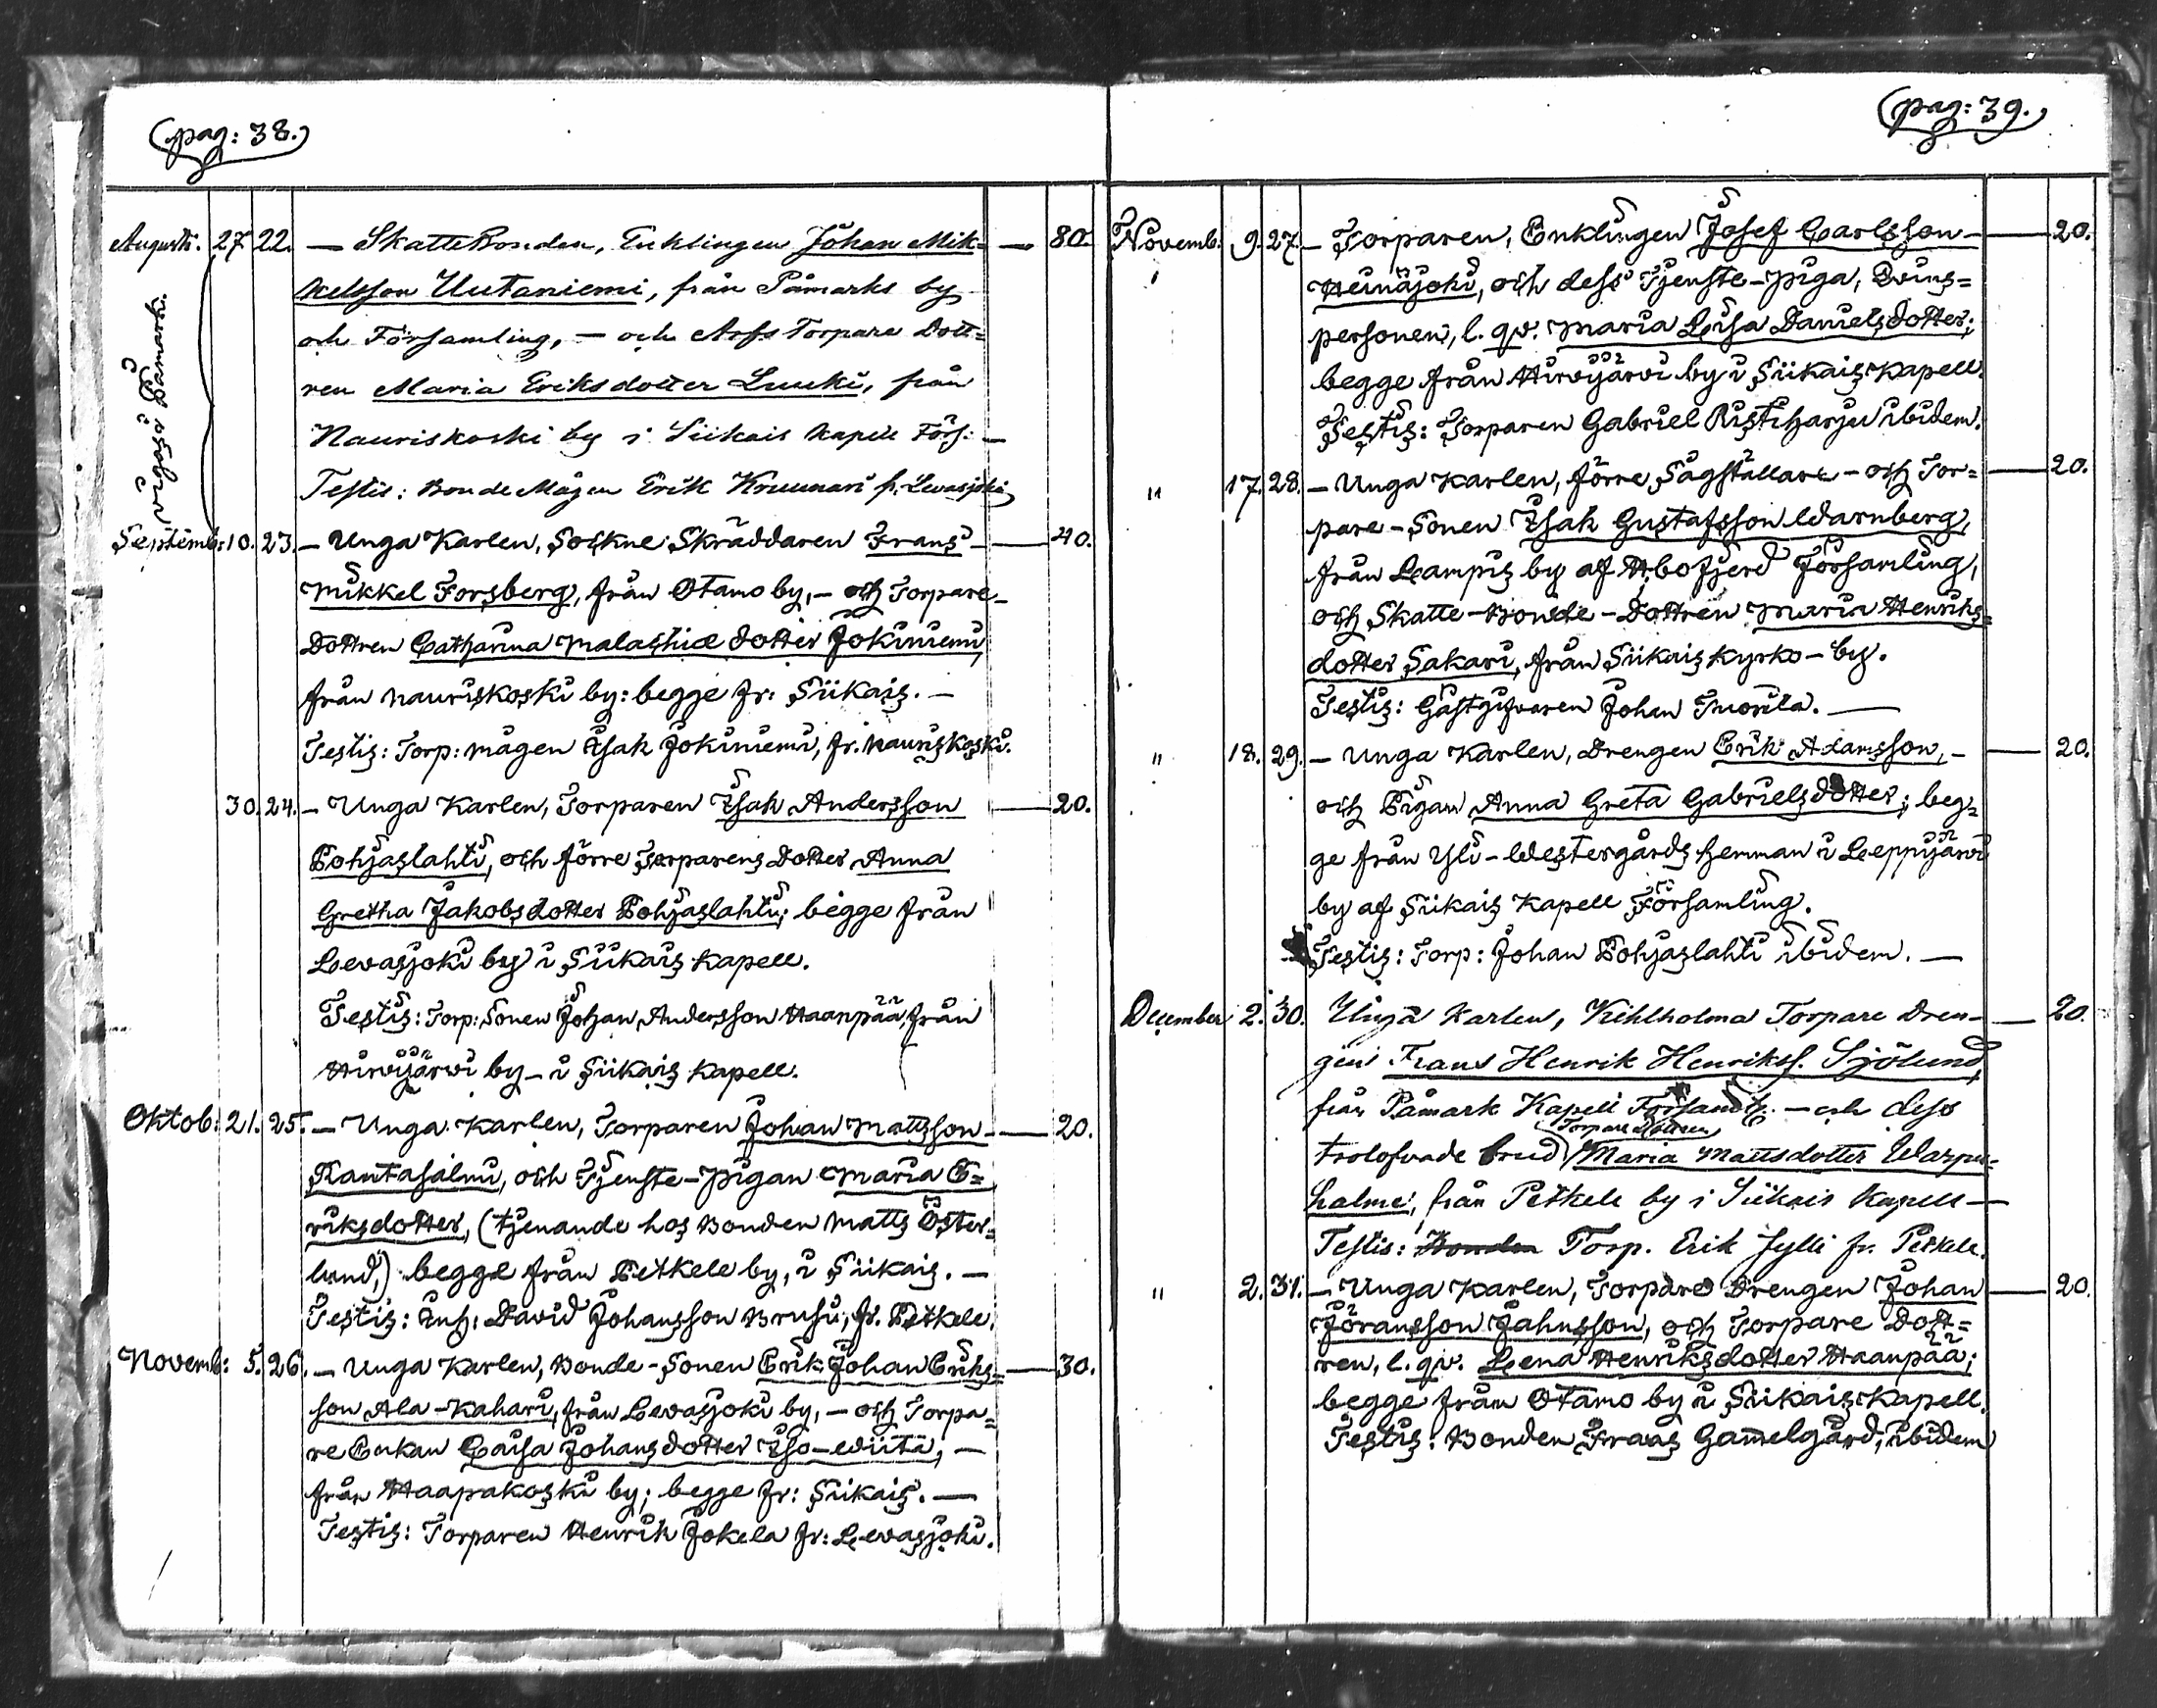 (pag: 38.)
Augusti. 27. 22. — SkatteBonden, Enklingen Johan Mik- — 80.
kelsson Uutaniemi, från Påmarks by
och Församling, — och Torpare Dott=
ren Maria Eriksdotter Luuki, från
Nauriskoski by i Siikais Kapell Förs: —
Testis: BondeMågen Erik Kruunari fr. Lewasjoki
i Påmark.
Septemb: 10. 23. — Unga Karlen, Sockne Skräddaren Frans — 40.
Mikkel Forsberg, från Otamo by, — och Torpare-
Dottren Catharina Malachiæ dotter Jokiniemi,
från Nauriskoski by: begge fr: Siikais. —
Testis: Torp: mågen Isak Jokiniemi, fr. Nauriskoski.
30. 24. — Unga Karlen, Torparen Isak Andersson — 20.
Pohjaslahti, och förre Torparens Dotter Anna
Gretha Jakobsdotter Pohjaslahti; begge från
Lewasjoki by i Siikais Kapell.
Testis: Torp: Sonen Johan Andersson Haanpää, från
Hirwijärwi by — i Siikais Kapell.
Oktob: 21. 25. — Unga Karlen, Torparen Johan Mattsson — 20.
Rantasalmi, och Tjenste-pigan Maria E=
riksdotter, (tjenande hos Bonden Matts Öster=
lund,) begge från Petkele by, i Siikais. —
Testis: Inh: David Johansson Brusi, fr. Petkele.
Novemb: 5. 26. — Unga Karlen, Bonde-Sonen Erik Johan Eriks= — 30.
son Ala-Kahari, från Lewasjoki by, — och Torpa=
re Enkan Caisa Johansdotter Iso-wiita, —
från Haapakoski by; begge fr: Siikais. —
Testis: Torparen Henrik Jokela fr: Lewasjoki.
(pag: 39.)
Novemb: 9. 27. — Torparen, Enklingen Josef Carlsson — 20.
Heinäjoki, och dess Tjenste-piga, Qvins=
personen, l. qv. Maria Lisa Danielsdotter;
begge från Hirwijärwi by i Siikais Kapell.
Testis: Torparen Gabriel Ristiharju ibidem.
" 17. 28. — Unga Karlen, förre Sågställare- och Tor= — 20.
pare-Sonen Isak Gustafsson Warnberg,
från Lampis by af Hwbofjerd Församling,
och Skatte-Bonde-Dottren Maria Henriks=
dotter Sakari, från Siikais Kyrko-by.
Testis: Gästgifvaren Johan Tuorila. —
" 18. 29. — Unga Karlen, Drengen Erik Adamsson, — 20.
och Pigan Anna Greta Gabrielsdotter; beg=
ge från Yli-Westergårds hemman i Leppijärwi
by af Siikais Kapell Församling.
Testis: Torp: Johan Pohjaslahti ibidem. —
December 2. 30. Unga Karlen, Kihlholma Torpare Dren- — 20.
gen Frans Henrik Henrikss. Sjölund,
från Påmark Kapell Församl. — och dess
Torpare Dottren
trolofvade brud Maria Mattsdotter Warpu-
halme, från Petkele by i Siikais Kapell —
Testis: Bonden Torp. Erik Jylli fr. Petkele.
" 2. 31. — Unga Karlen, Torpare Drengen Johan — 20.
Jöransson Jahnsson, och Torpare Dott=
ren, l. qv. Leena Henriksdotter Haanpää;
begge från Otamo by i Siikais Kapell.
Testis: Bonden Frans Gammelgård, ibidem